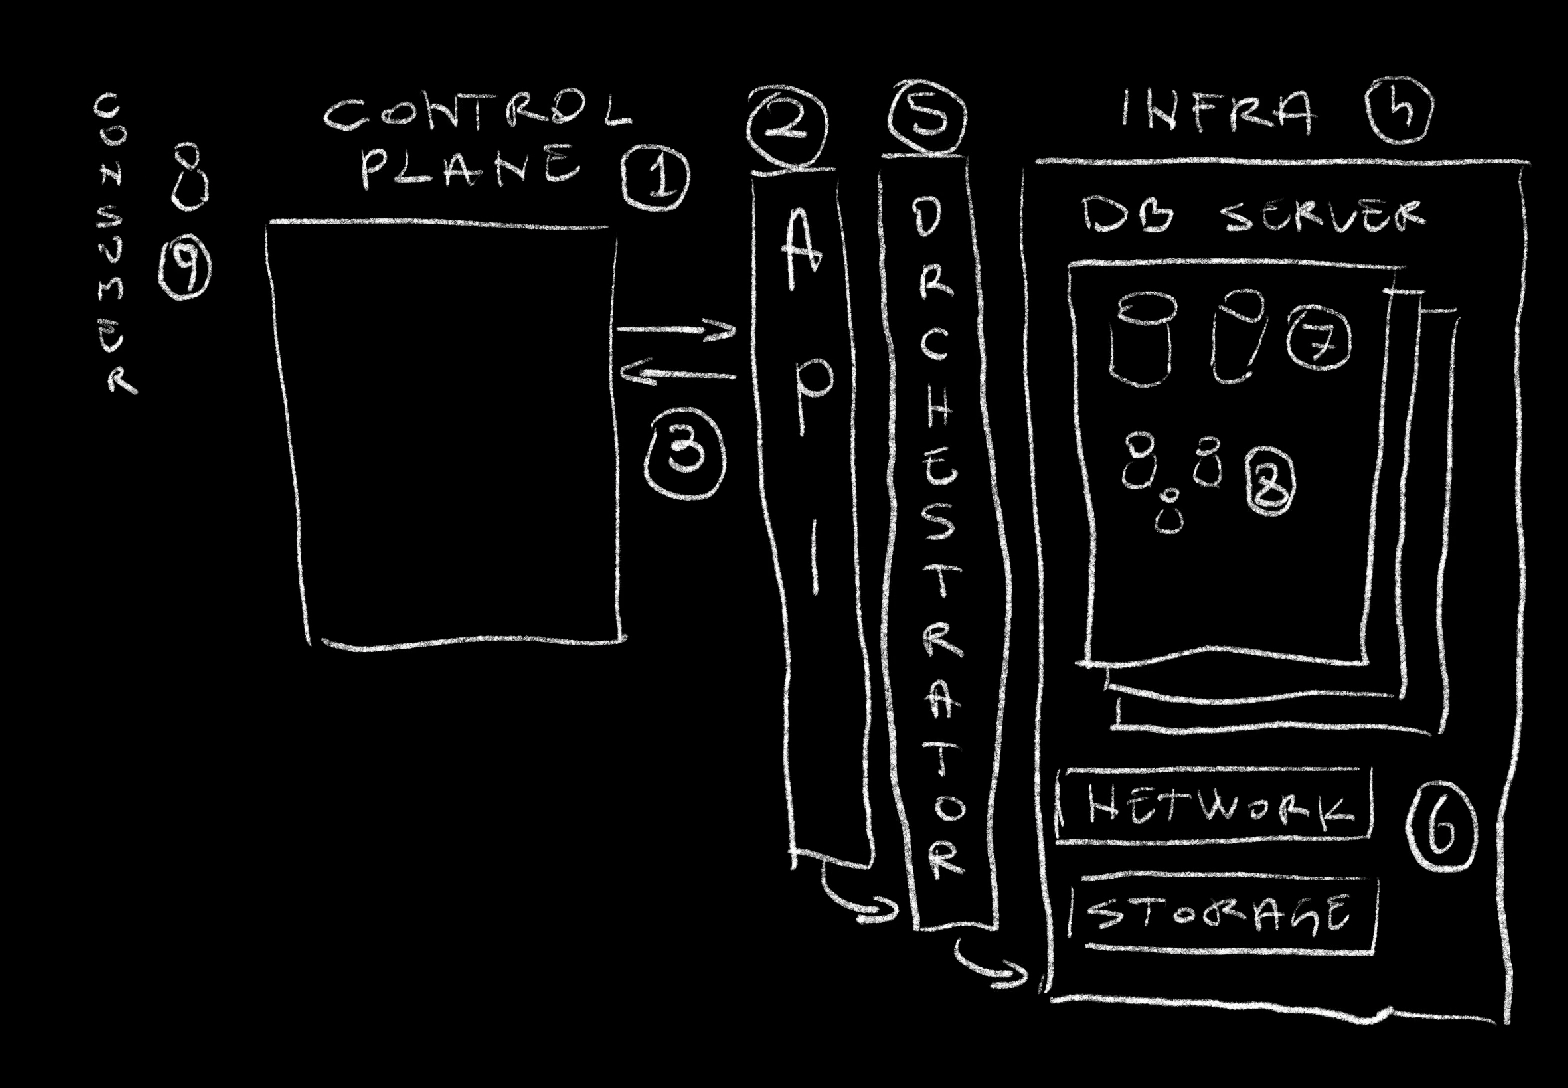 CONSUMER
9
CONTROL
PLANE 1
2
API
3
5
ORCHESTRATOR
INFRA 4
DB SERVER
7
8
NETWORK
6
STORAGE